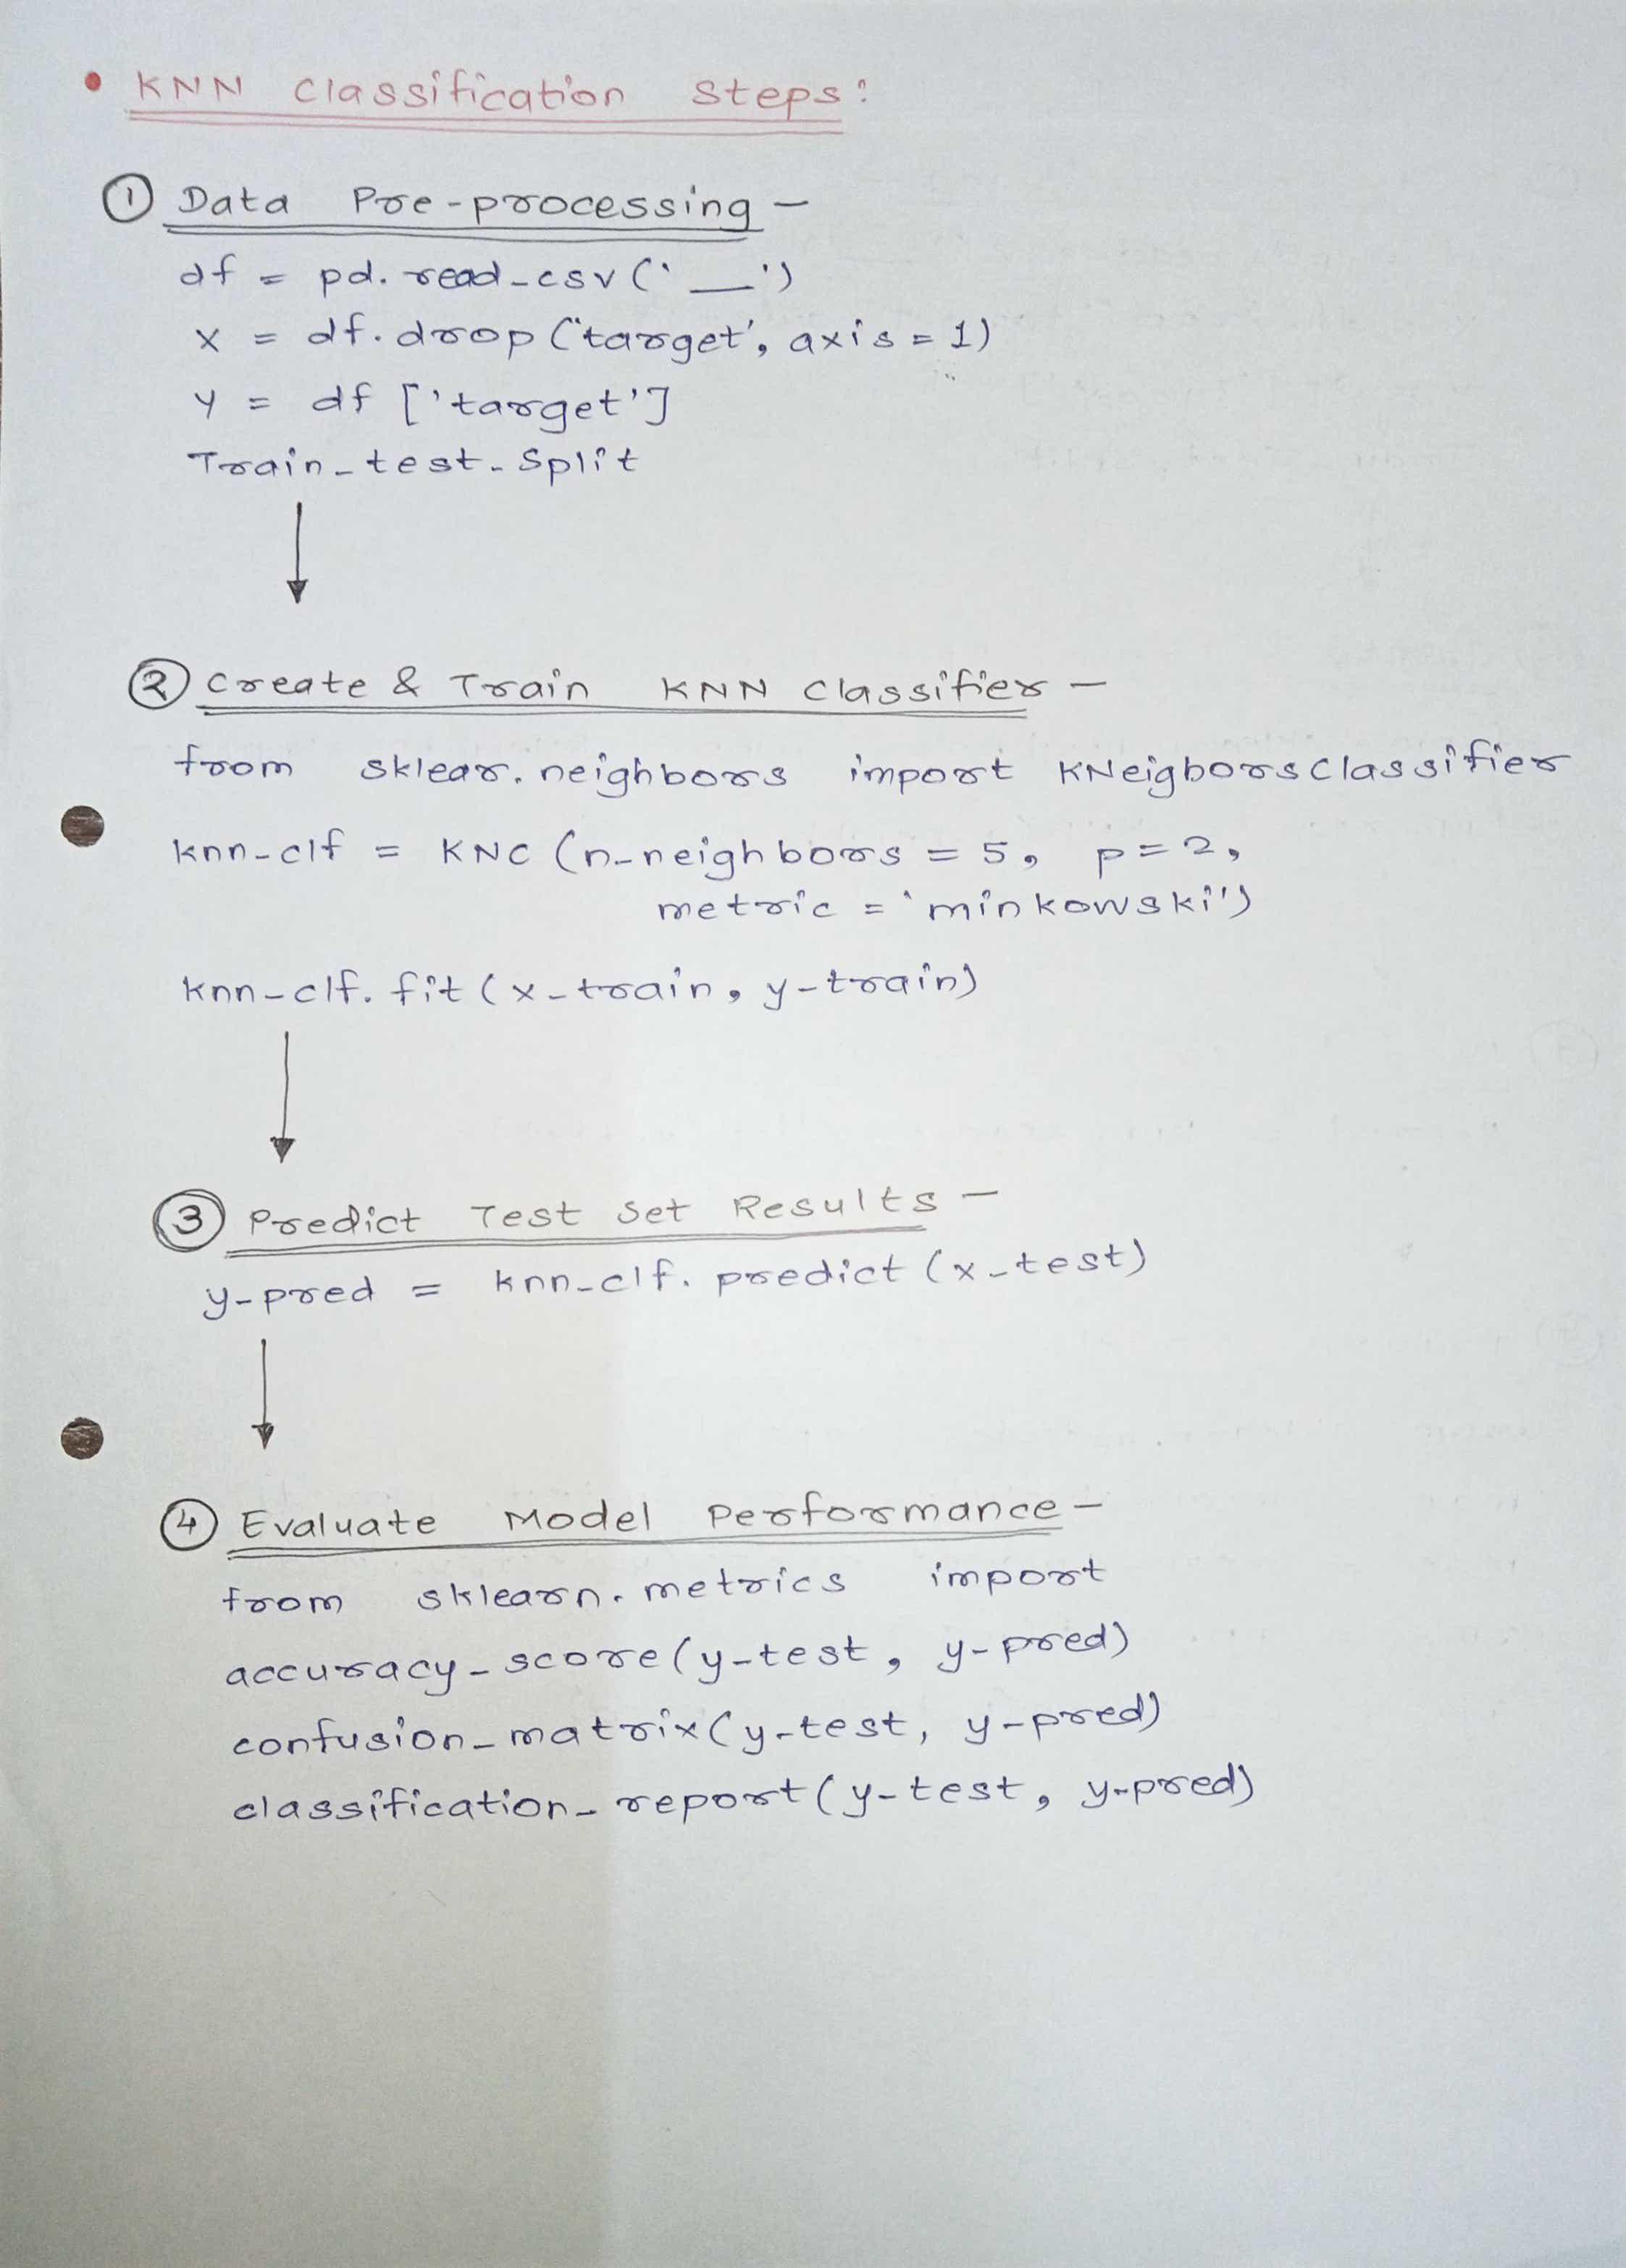 • KNN Classification Steps:
① Data Pre-processing -
df = pd.read_csv('__')
x = df.drop('target', axis = 1)
y = df ['target']
Train_test_Split
② Create & Train KNN Classifier -
from sklear.neighbors import KNeigborsClassifier
knn-clf = KNC (n-neighbors = 5, p = 2,
metric = 'minkowski')
knn-clf.fit (x-train, y-train)
③ Predict Test Set Results -
y-pred = knn-clf.predict (x-test)
④ Evaluate Model Performance -
from sklearn.metrics import
accuracy-score(y-test, y-pred)
confusion-matrix(y-test, y-pred)
classification-report(y-test, y-pred)